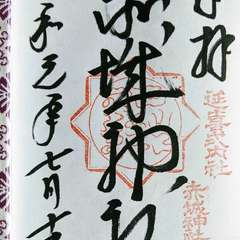 拝
延喜式内社
赤城神社
赤城神社
和元年七月十